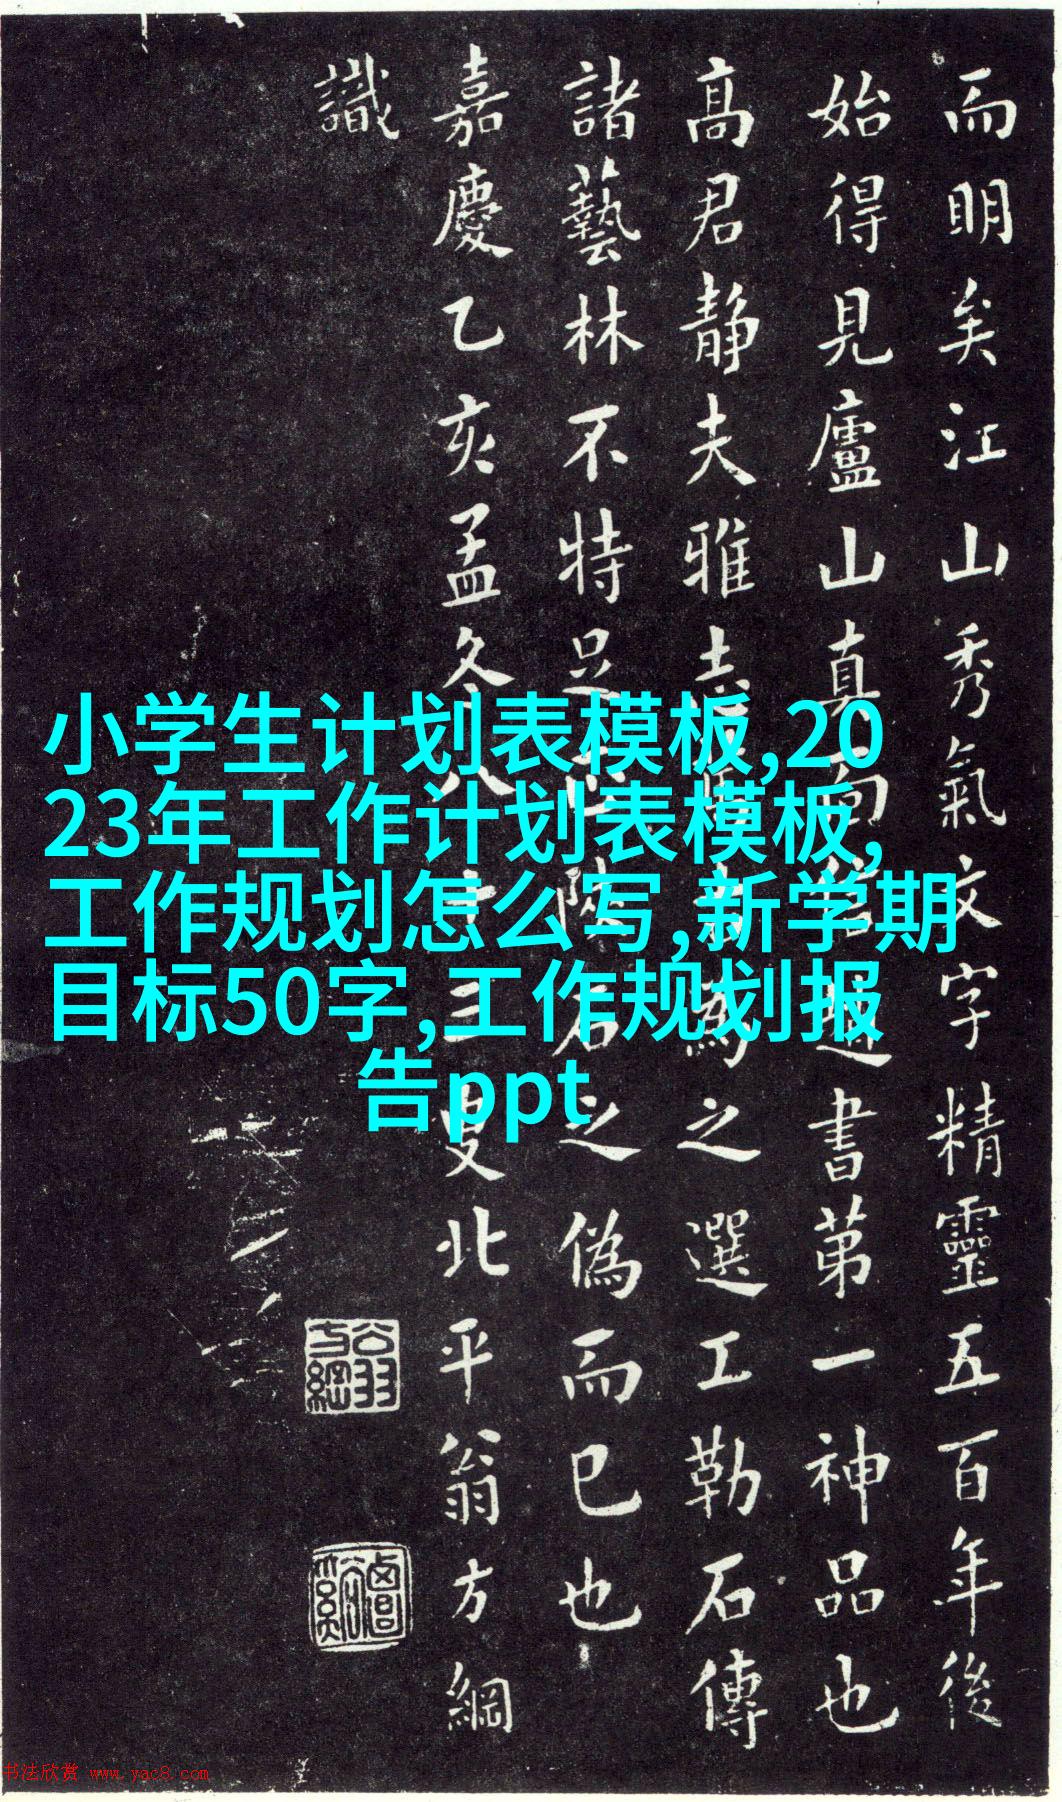 而明矣江山秀氣文字精靈五百年後
始得見廬山真面書第一神品也
高君静夫雅之選工勒石傳
諸藝林不特石之偽而已也
嘉慶乙亥孟冬八十三叟北平翁方綱
識
小学生计划表模板,20
23年工作计划表模板,
工作规划怎么写,新学期
目标50字,工作规划报
告ppt
翁方綱
书法欣赏 www.yac8.com